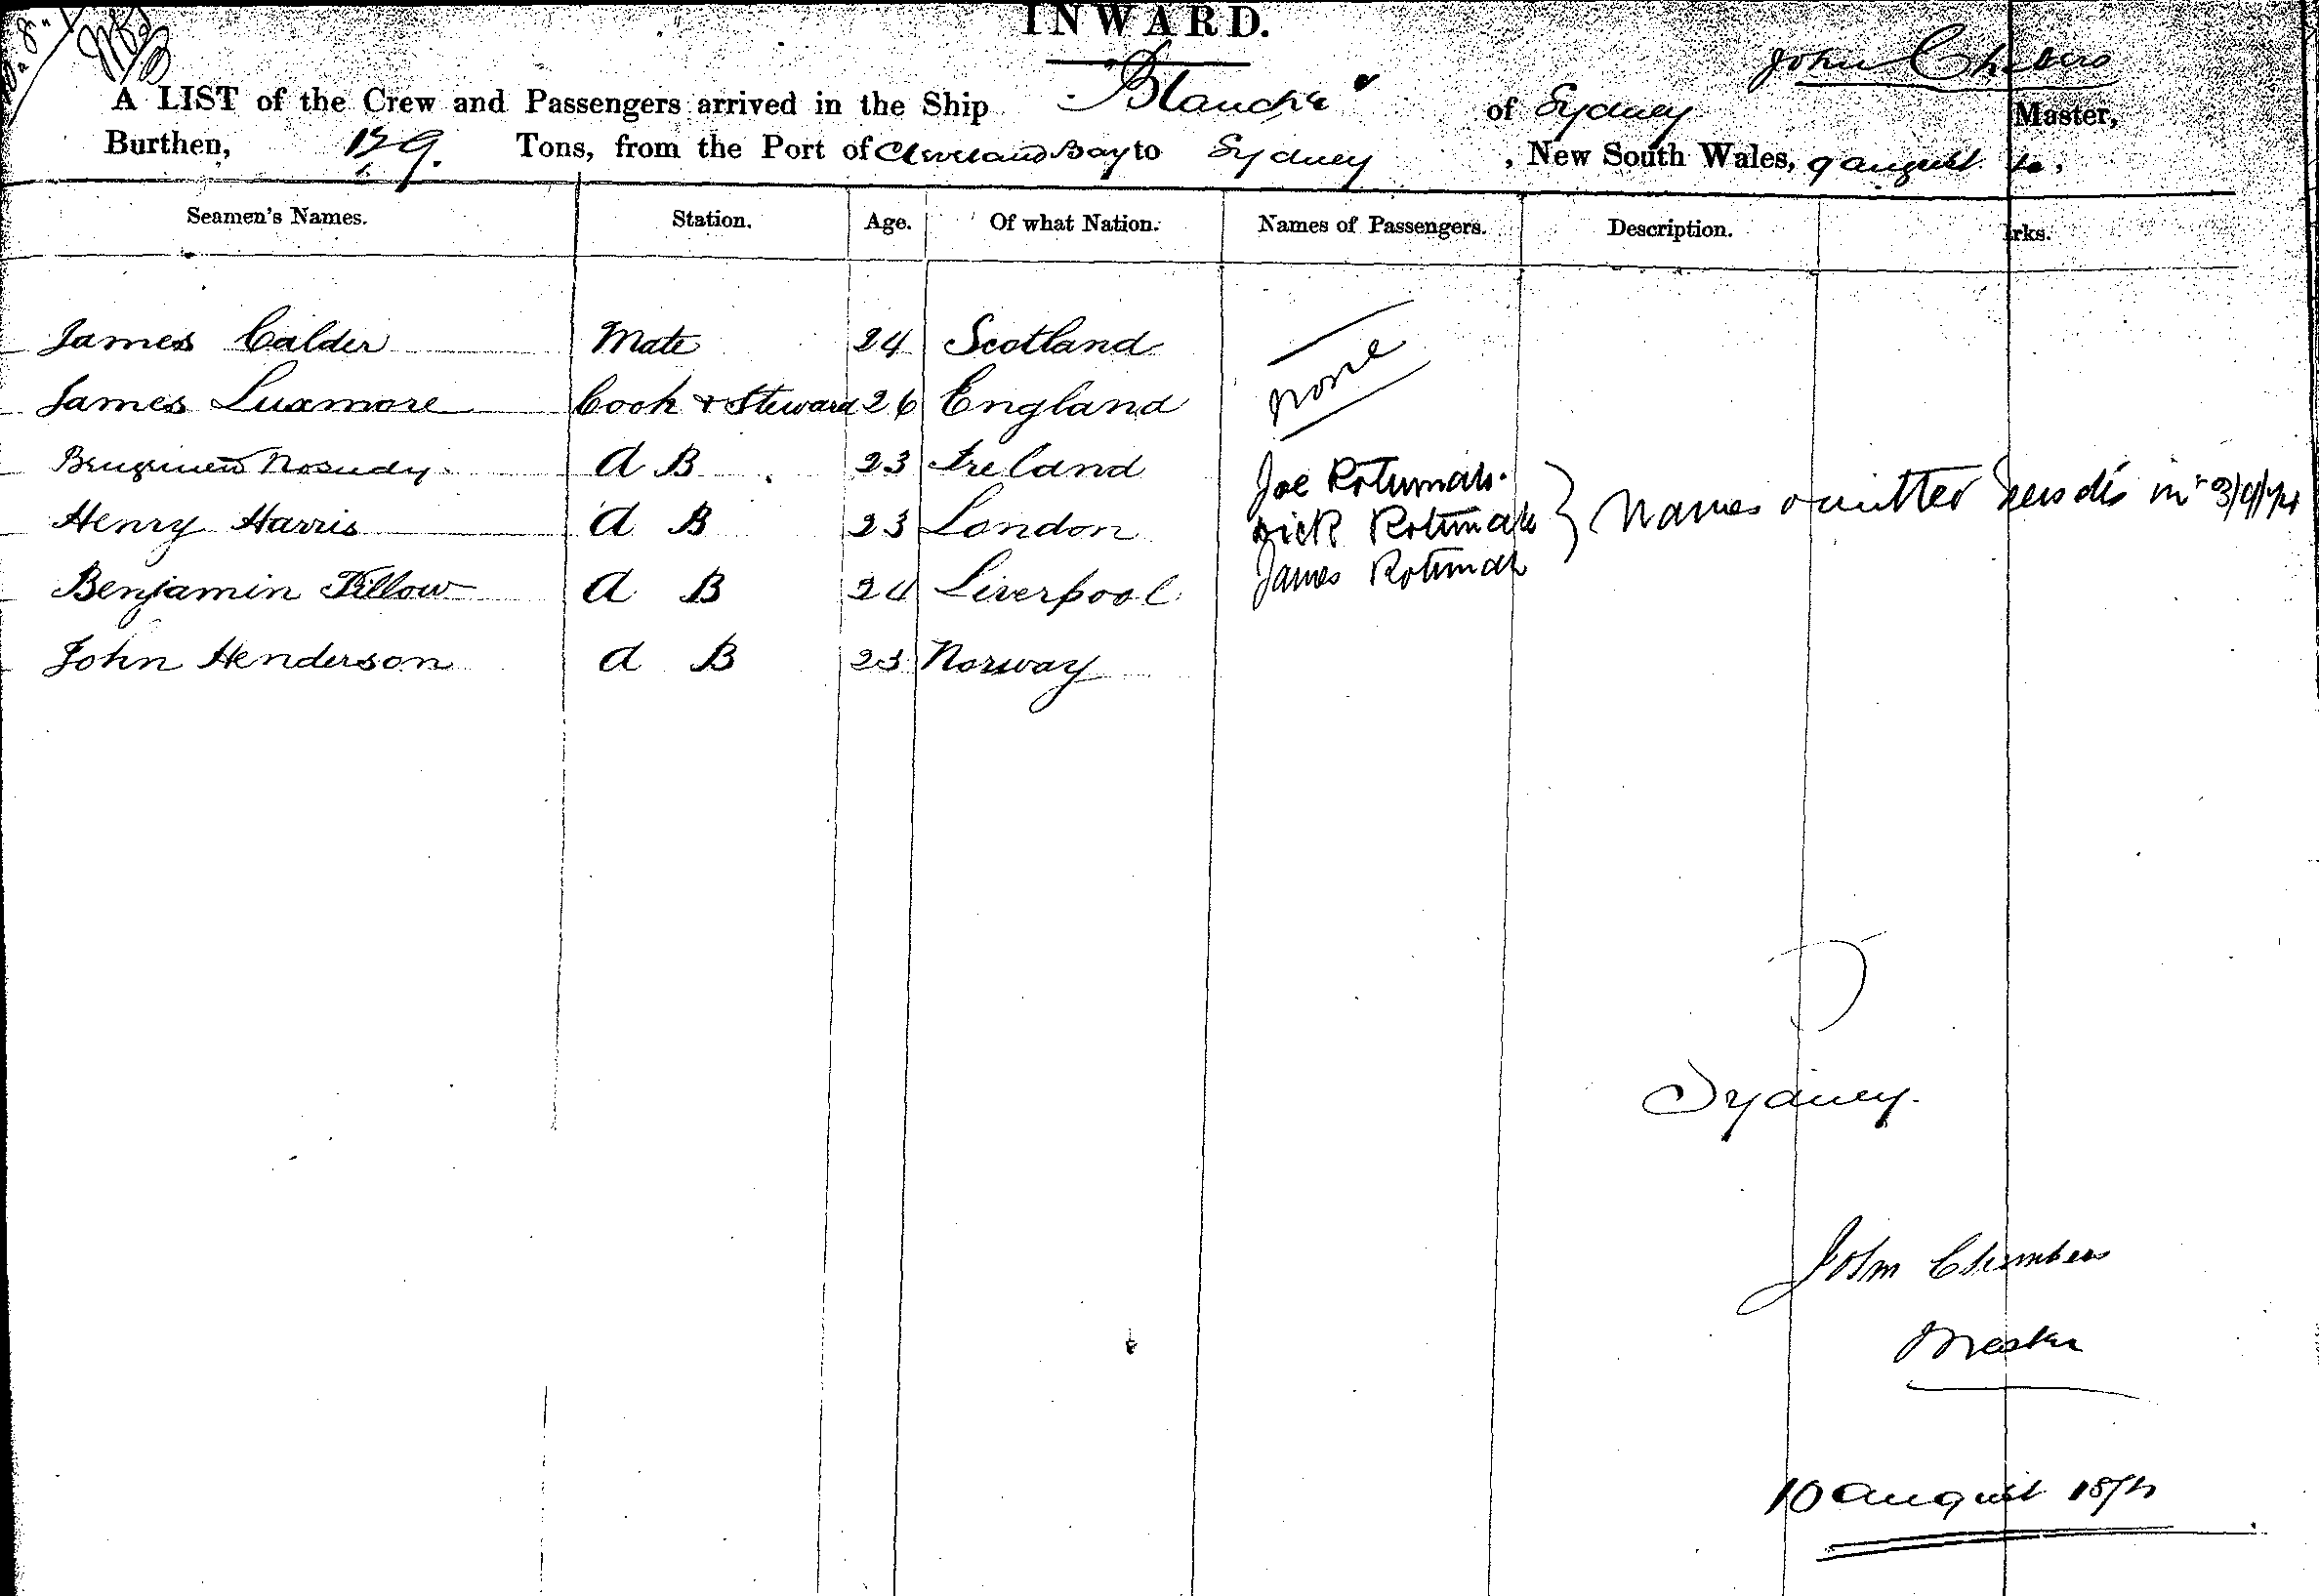 INWARD.
John Chambers
A LIST of the Crew and Passengers arrived in the Ship Blanche of Sydney Master,
Burthen, 139. Tons, from the Port of Cleveland Bay to Sydney, New South Wales, 9 august
Seamen's Names. Station. Age. Of what Nation. Names of Passengers. Description. rks.
James Calder Mate 24 Scotland
none
James Luxmore Cook & Steward 26 England
A B 23 Ireland Joe Rotumah.
Henry Harris A B 23 London Dick Rotumah } Names omitted
Benjamin Tillow A B 24 Liverpool James Rotumah
John Henderson A B 23 Norway
Sydney.
John Chambers
Master
10 august